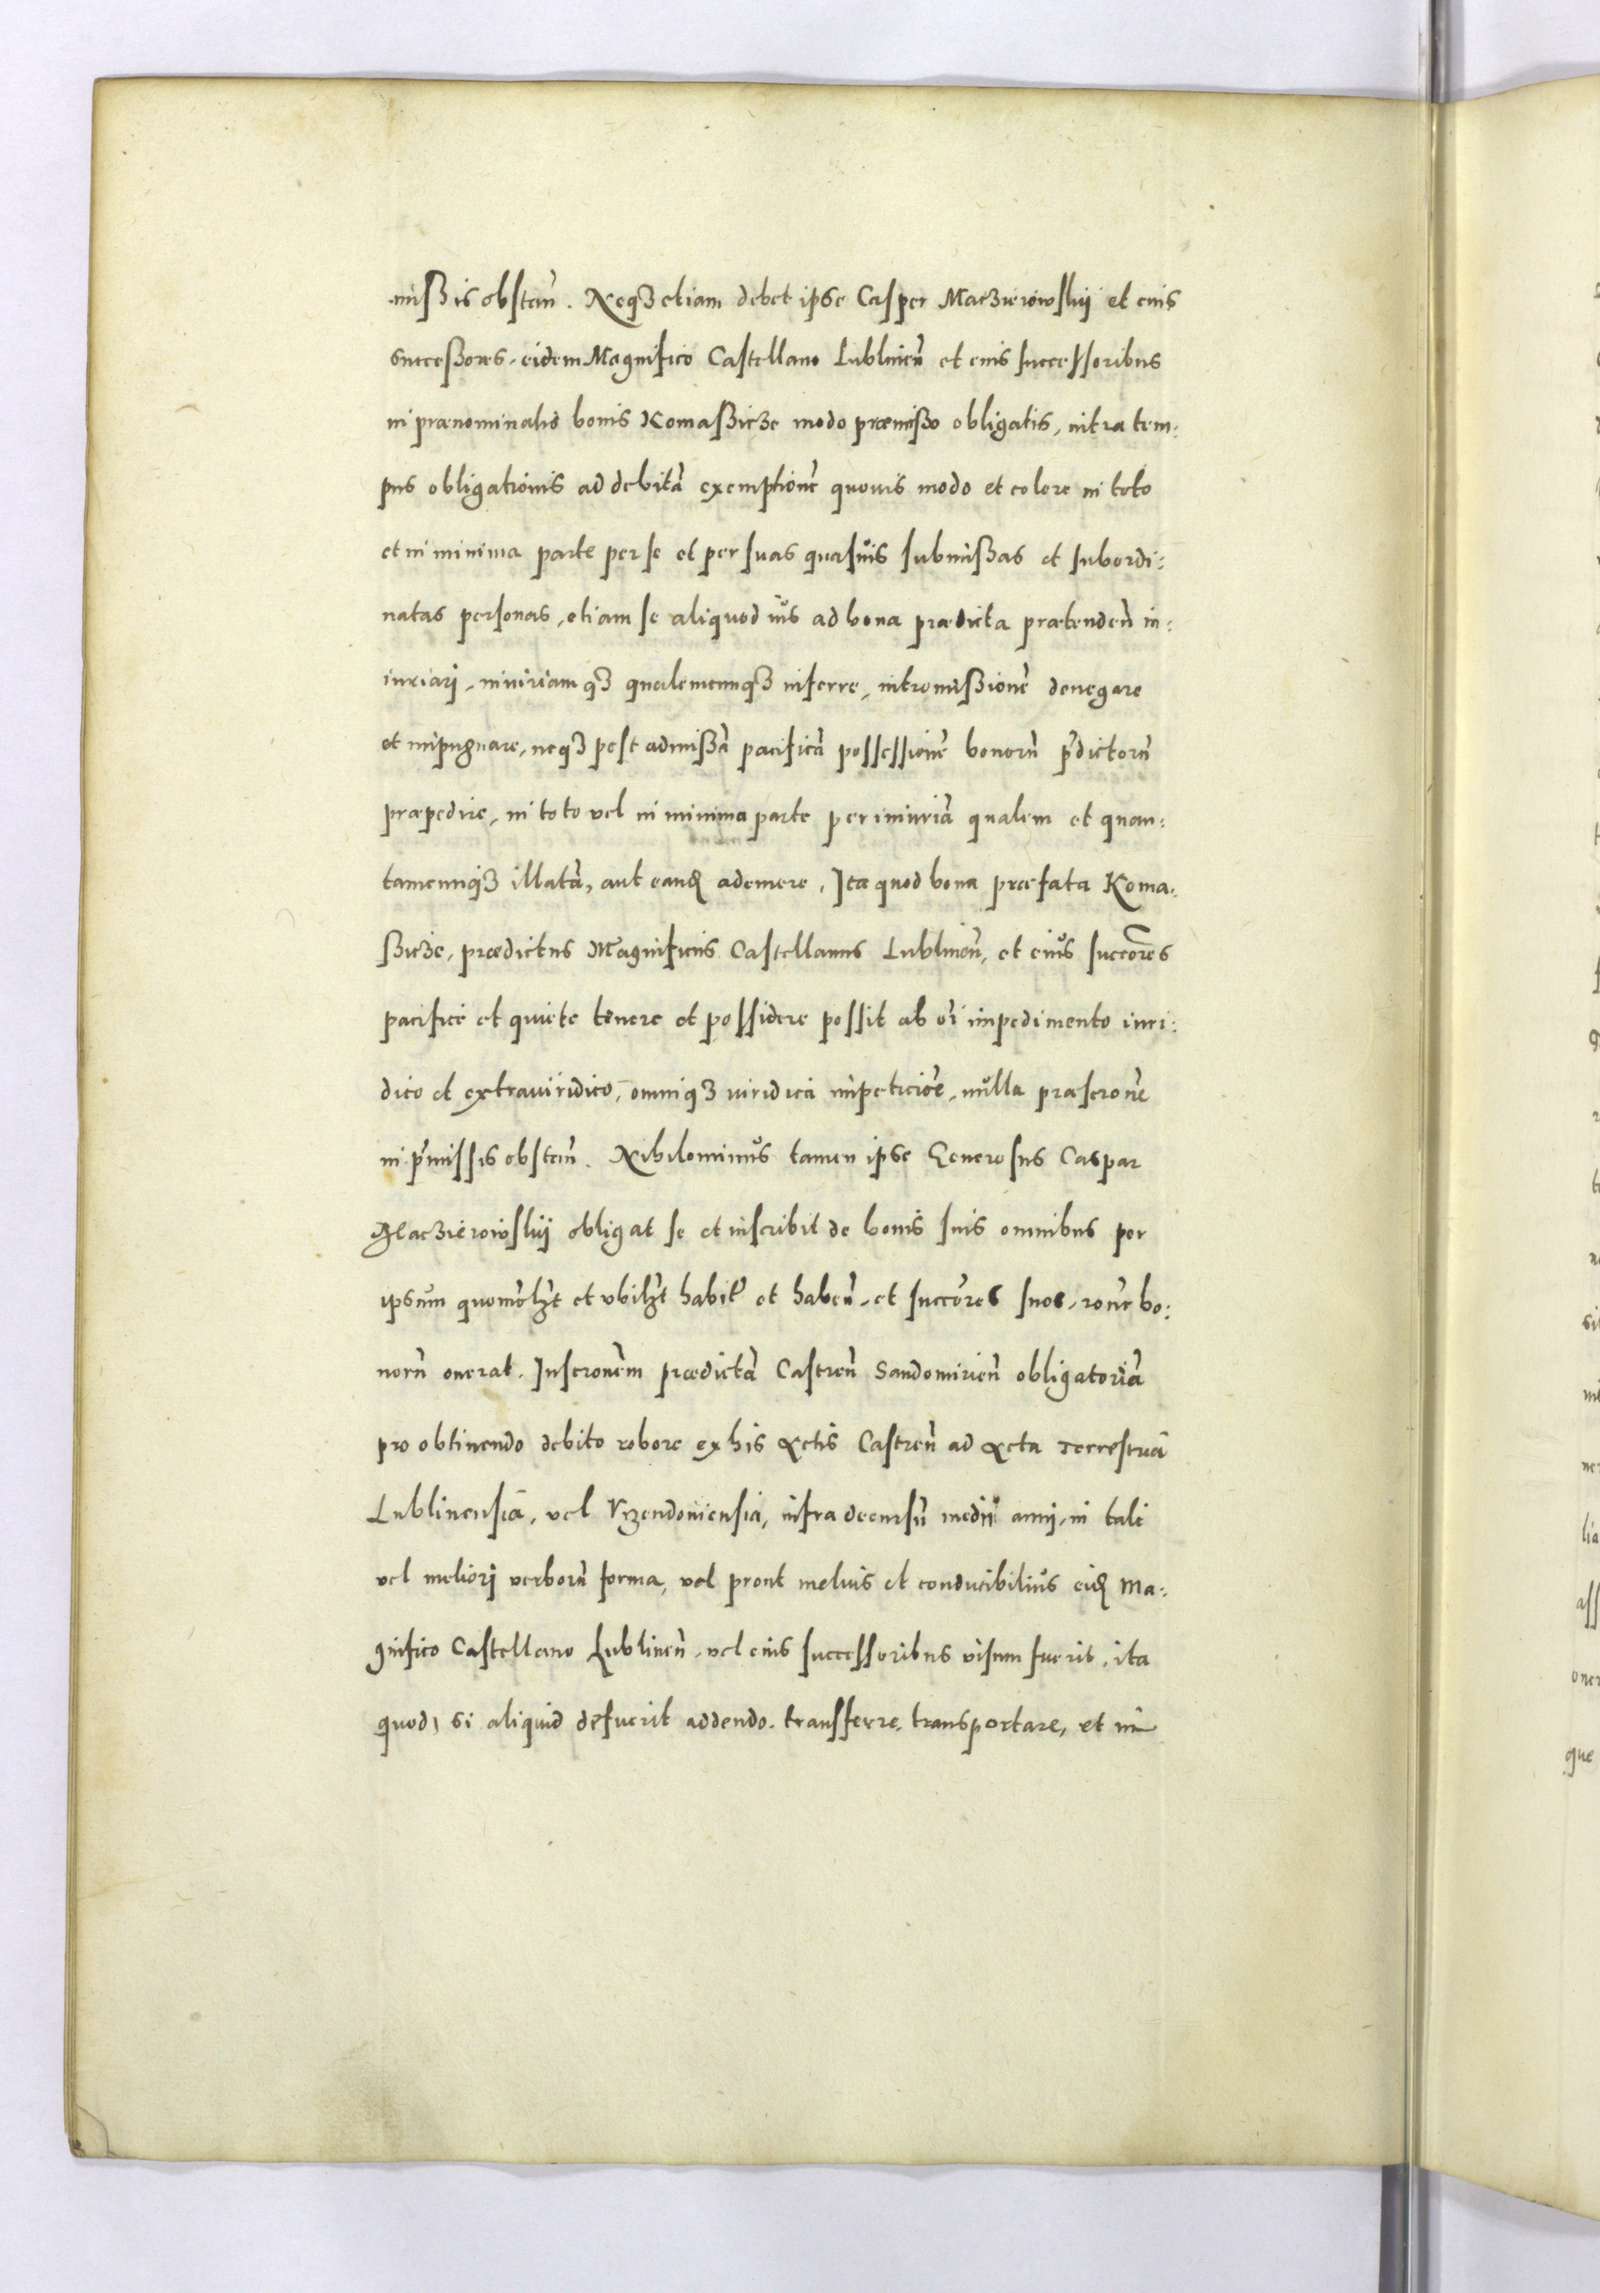 missis obsten̄. Neqʒ etiam debet ipse Casper Maczieiowskij et eius
successores, eidem Magnifico Castellano Lublinen̄ et eius successoribus
in prænominatis bonis Komassicze modo præmisso obligatis, intra tem:
pus obligationis ad debitā exemptionē quouis modo et colore in toto
et in minima parte per se et per suas quasuis submissas et subordi:
natas personas, etiam se aliquod ius ad bona prædicta prætenden̄ in:
iuriari, iniuriamqʒ qualemcunqʒ inferre, intromissionē denegare
et impugnare, neqʒ post admissā pacificā possessionē bonorū p̄dictorū
præpedire, in toto vel in minima parte per iniuriā qualem et quan:
tamcunqʒ illatā, aut eandē ademere. Ita quod bona præfata Koma:
ssicze, prædictus Magnificus Castellanus Lublinen̄, et eius succōres
pacifice et quiete tenere et possidere possit ab oī impedimento iuri:
dico et extraiuridico, omniqʒ iuridica impeticiōe, nulla præscronē
in p̄missis obsten̄. Nihilominus tamen ipse Generosus Caspar
Maczieiowskij obligat se et inscribit de bonis suis omnibus per
ipsum quomōlʒt et vbilʒt habit̄ et haben̄, et succōres suos, ronē bo:
norū onerat. Inscronem prædictā Castren̄ Sandomirien̄ obligatoriā
pro obtinendo debito robore ex his Actis Castren̄ ad Acta Terrestriā
Lublinensiā, vel Vrzendouiensia, infra decursū medii anni, in tali
vel meliori verborū forma, vel prout melius et conducibilius eidē Ma:
gnifico Castellano Lublinen̄, vel eius successoribus visum fuerit, ita
quod, si aliquid defuerit addendo, transferre, transportare, et in